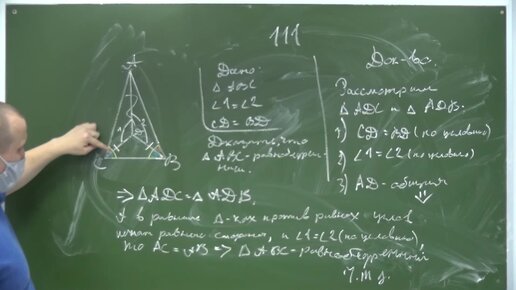 111
A
1
2
D
C
B
Дано:
Δ ABC
∠1=∠2
CD = BD
Доказать, что
Δ ABC - равнобедрен-
ный.
Док-во.
Рассмотрим
Δ ADC и Δ ADB:
1) CD = BD (по условию)
2) ∠1 = ∠2 (по условию)
3) AD - общая
⇓
⇒ Δ ADC = Δ ADB.
А в равных Δ-ках против равных углов
лежат равные стороны, и ∠1=∠2 (по условию)
то AC = AB ⇒ Δ ABC - равнобедренный
Ч.т.д.